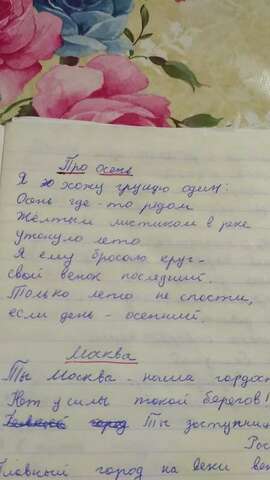 Про осень
Я хожу грущу один:
Осень где-то рядом
Жёлтым листиком в реке
утонуло лето.
Я ему бросаю круг -
свой венок последний.
Только лето не спасти,
если день - осенний.
Москва
Ты Москва - наша гордос
Нет у силы такой берегов!
город Ты заступни
Рос
Главный город на веки ве